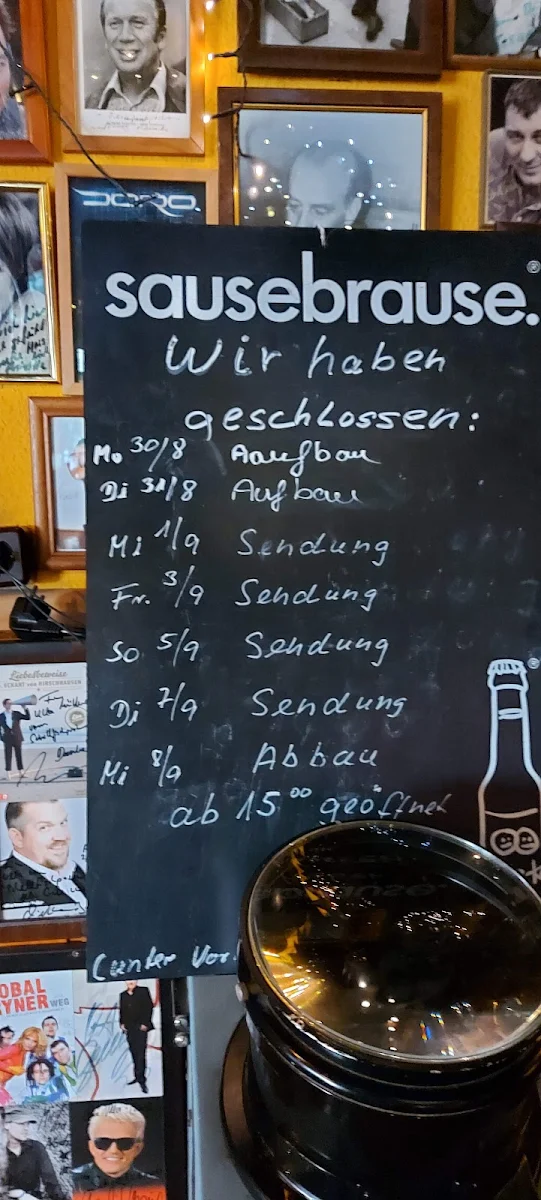 DORO
sausebrause.®
Wir haben
geschlossen:
Mo 30/8 Aaufbau
Di 31/8 Aufbau
Mi 1/9 Sendung
Fr. 3/9 Sendung
So 5/9 Sendung
Di 7/9 Sendung
Mi 8/9 Abbau
ab 15⁰⁰ geöffnet
(unter Vor.
Liebesbeweise
ECKART von HIRSCHHAUSEN
OBAL
YNER WEG